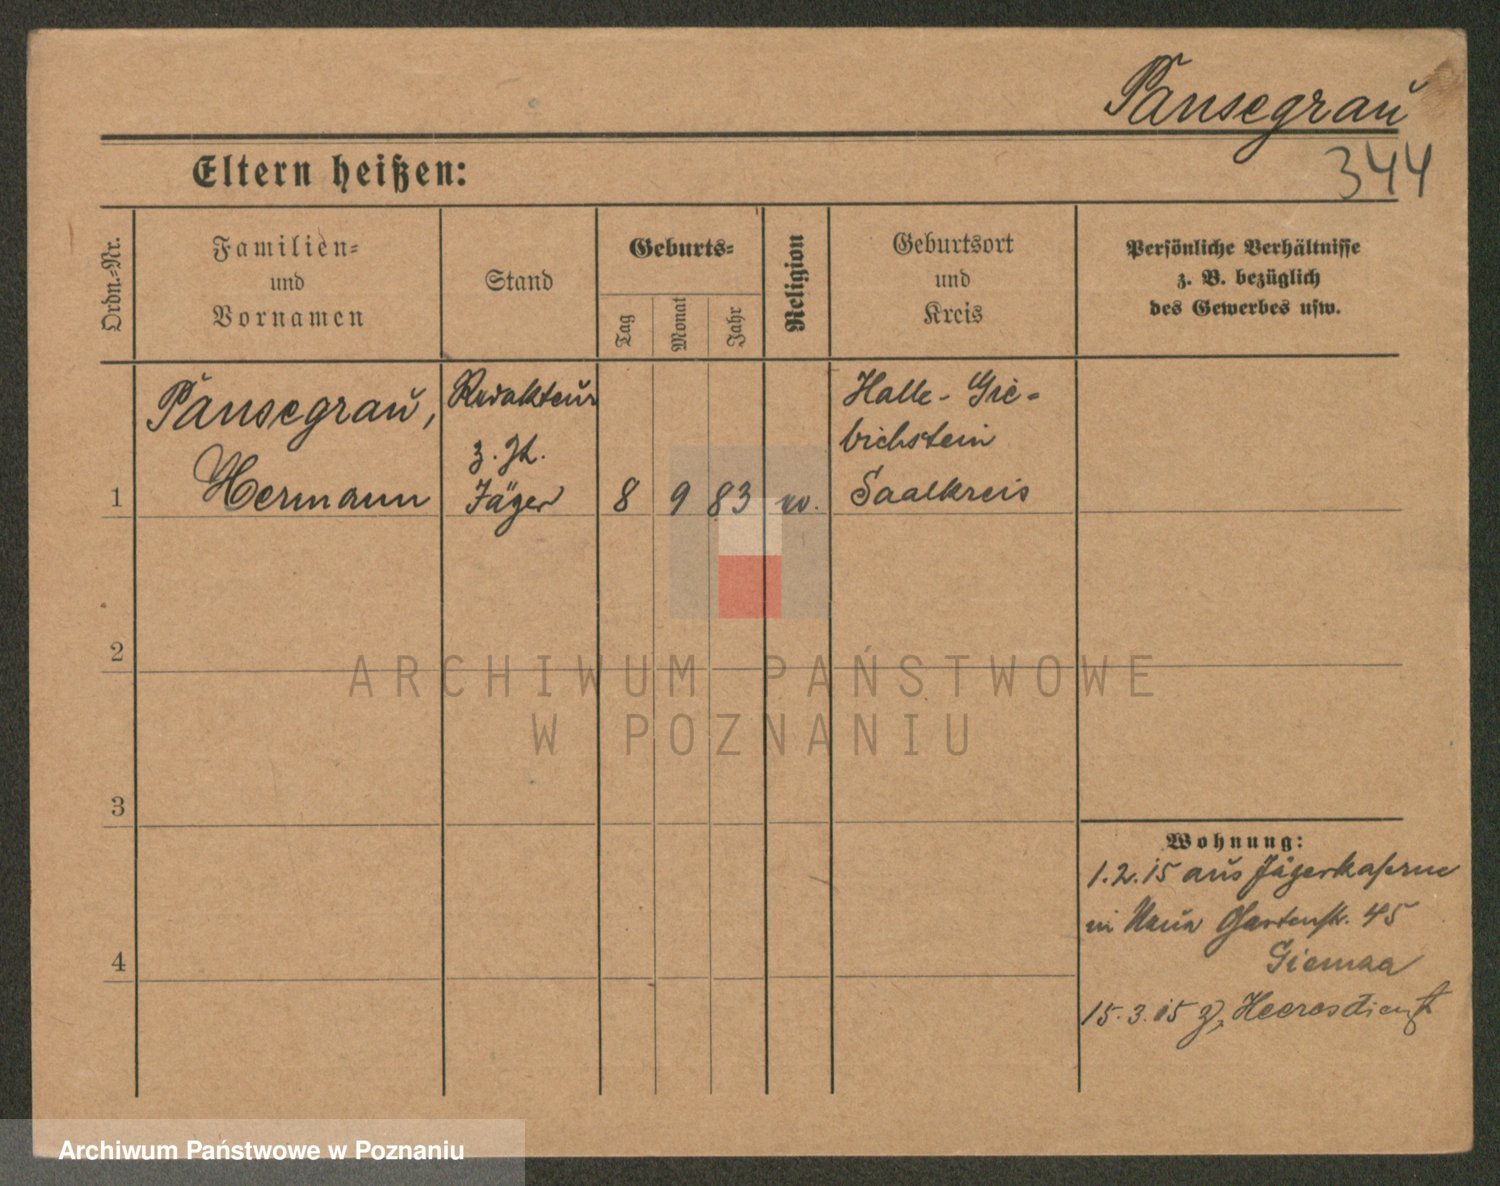 Pansegrau
344
Eltern heißen:
Ordn.-Nr.
Familien-
und
Vornamen
Stand
Geburts-
Tag
Monat
Jahr
Religion
Geburtsort
und
Kreis
Persönliche Verhältnisse
z. B. bezüglich
des Gewerbes usw.
1
Pansegrau,
Hermann
Redakteur
z. Zt.
Jäger
8 9 83
Halle-Gie-
bichstein
Saalkreis
2
3
4
Wohnung:
1.2.15 aus Jägerkaserne
in Gartenstr. 45
15.3.15 z. Heeresdienst
ARCHIWUM PAŃSTWOWE
W POZNANIU
Archiwum Państwowe w Poznaniu